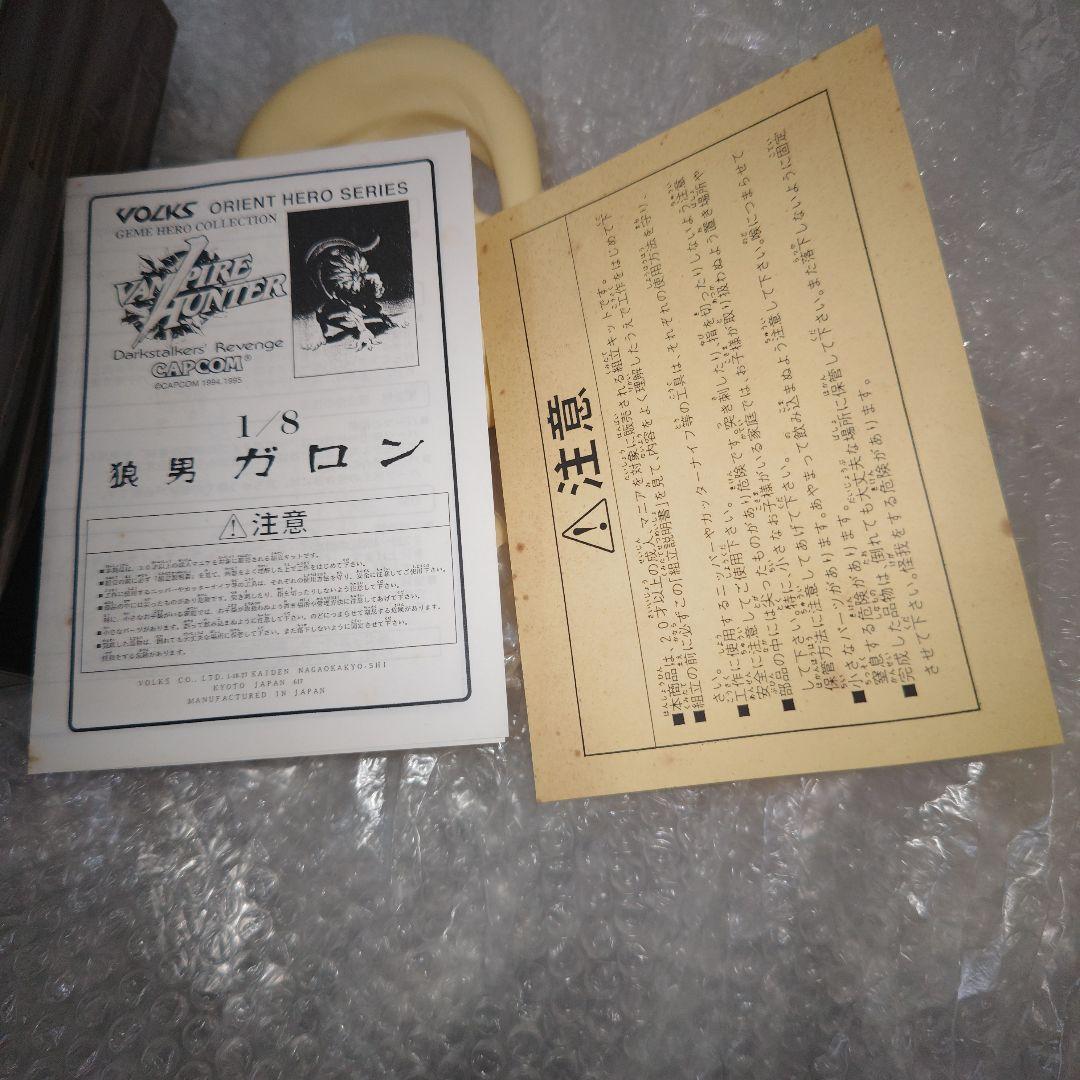 VOLKS ORIENT HERO SERIES
GEME HERO COLLECTION
VAMPIRE
HUNTER
Darkstalkers' Revenge
CAPCOM®
©CAPCOM 1994,1995
1/8
狼男 ガロン
⚠注意
■組立の前に必ず「組立説明書」を見て、内容をよく理解したうえで工作をはじめて下さい。
VOLKS CO., LTD. 1-10-27 KAIDEN NAGAOKAKYO-SHI
KYOTO JAPAN 617
MANUFACTURED IN JAPAN
⚠注意
■本商品は、20才以上の成人、マニアを対象に販売される組立キットです。
■組立の前に必ずこの「組立説明書」を見て、内容をよく理解したうえで工作をはじめて下
さい。
■工作に使用するニッパーやカッターナイフ等の工具は、それぞれの使用方法を守り、
安全に注意してご使用下さい。
■部品の中には尖ったものがあり危険です。突き刺したり、指を切ったりしないよう注意
して下さい。特に、小さなお子様がいる家庭では、お子様が取り扱わぬよう置き場所や
保管方法に注意してあげて下さい。
■小さなパーツがあります。あやまって飲み込まぬよう注意して下さい。喉につまらせて
窒息する危険があります。
■完成した品物は、倒れても大丈夫な場所に保管して下さい。また落下しないように固定
させて下さい。怪我をする危険があります。